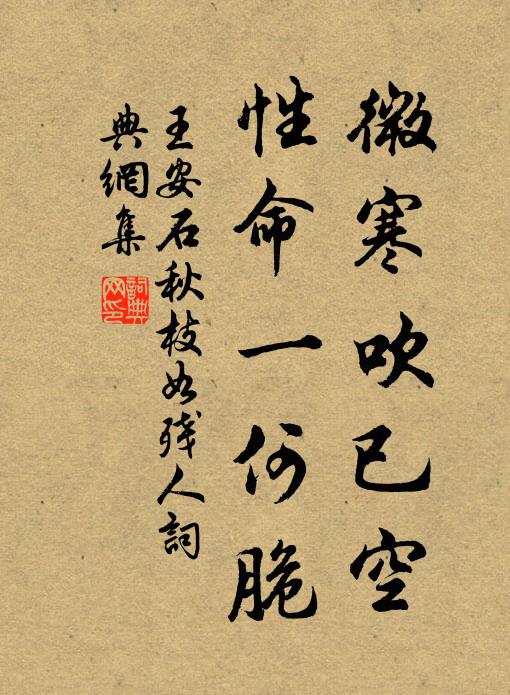 微寒吹已空
性命一何脆
王安石秋枝如殘人詞
典網集
詞典
网印